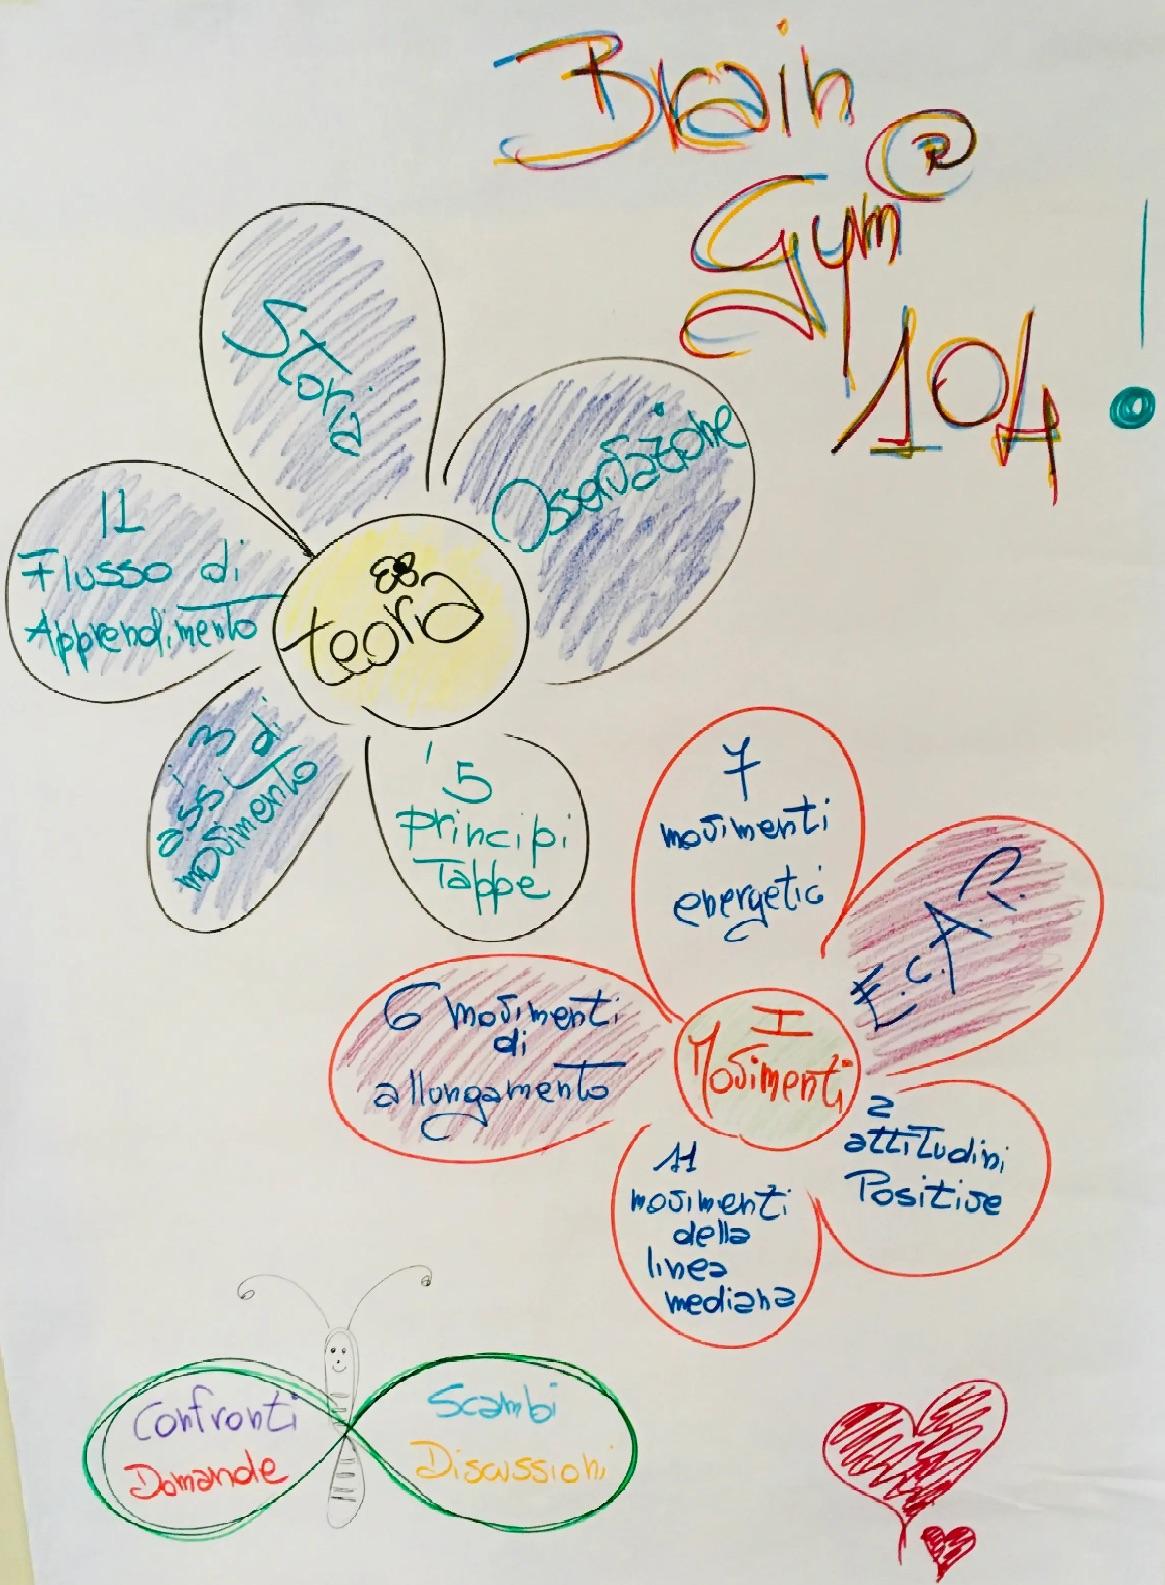 Brain
Gym®
104!
Storia
Osservazione
Il
Flusso di
Apprendimento
teoria
i 3 di
assi
movimento
i 5
Principi
Tappe
7
movimenti
energetici
E.C.A.P.
6 movimenti
di
allungamento
I
Movimenti
2
attitudini
Positive
11
movimenti
della
linea
mediana
Confronti
Domande
Scambi
Discussioni